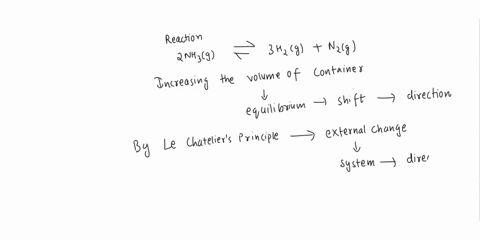 Reaction
2NH₃(g) ⇌ 3H₂(g) + N₂(g)
Increasing the volume of container
↓
equilibrium → shift → direction
By Le Chatelier's Principle → external change
↓
system → dire